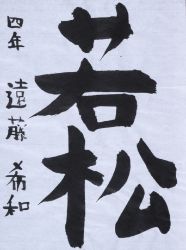 若松
四年 遠藤希和